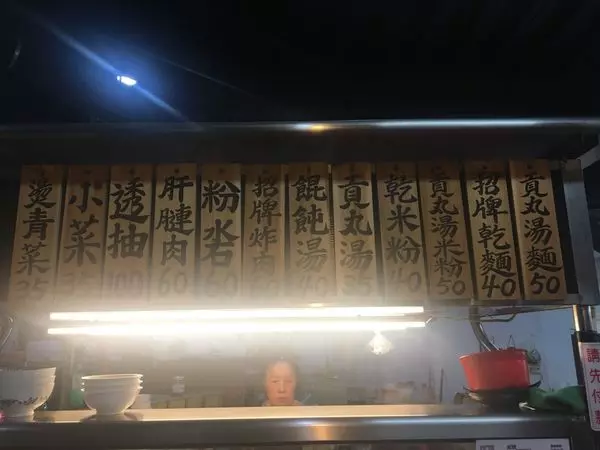 貢丸湯麵 50
招牌乾麵 40
貢丸湯米粉 50
乾米粉 40
貢丸湯 35
餛飩湯 40
招牌炸肉
粉
肝腱肉 60
透抽 100
小菜
燙青菜 35
請先付款